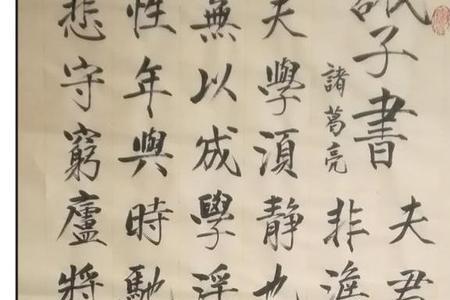 誡子書
諸葛亮
夫君
非澹
夫學湏静也
無以成學淫
性年與時馳
悲守窮廬將